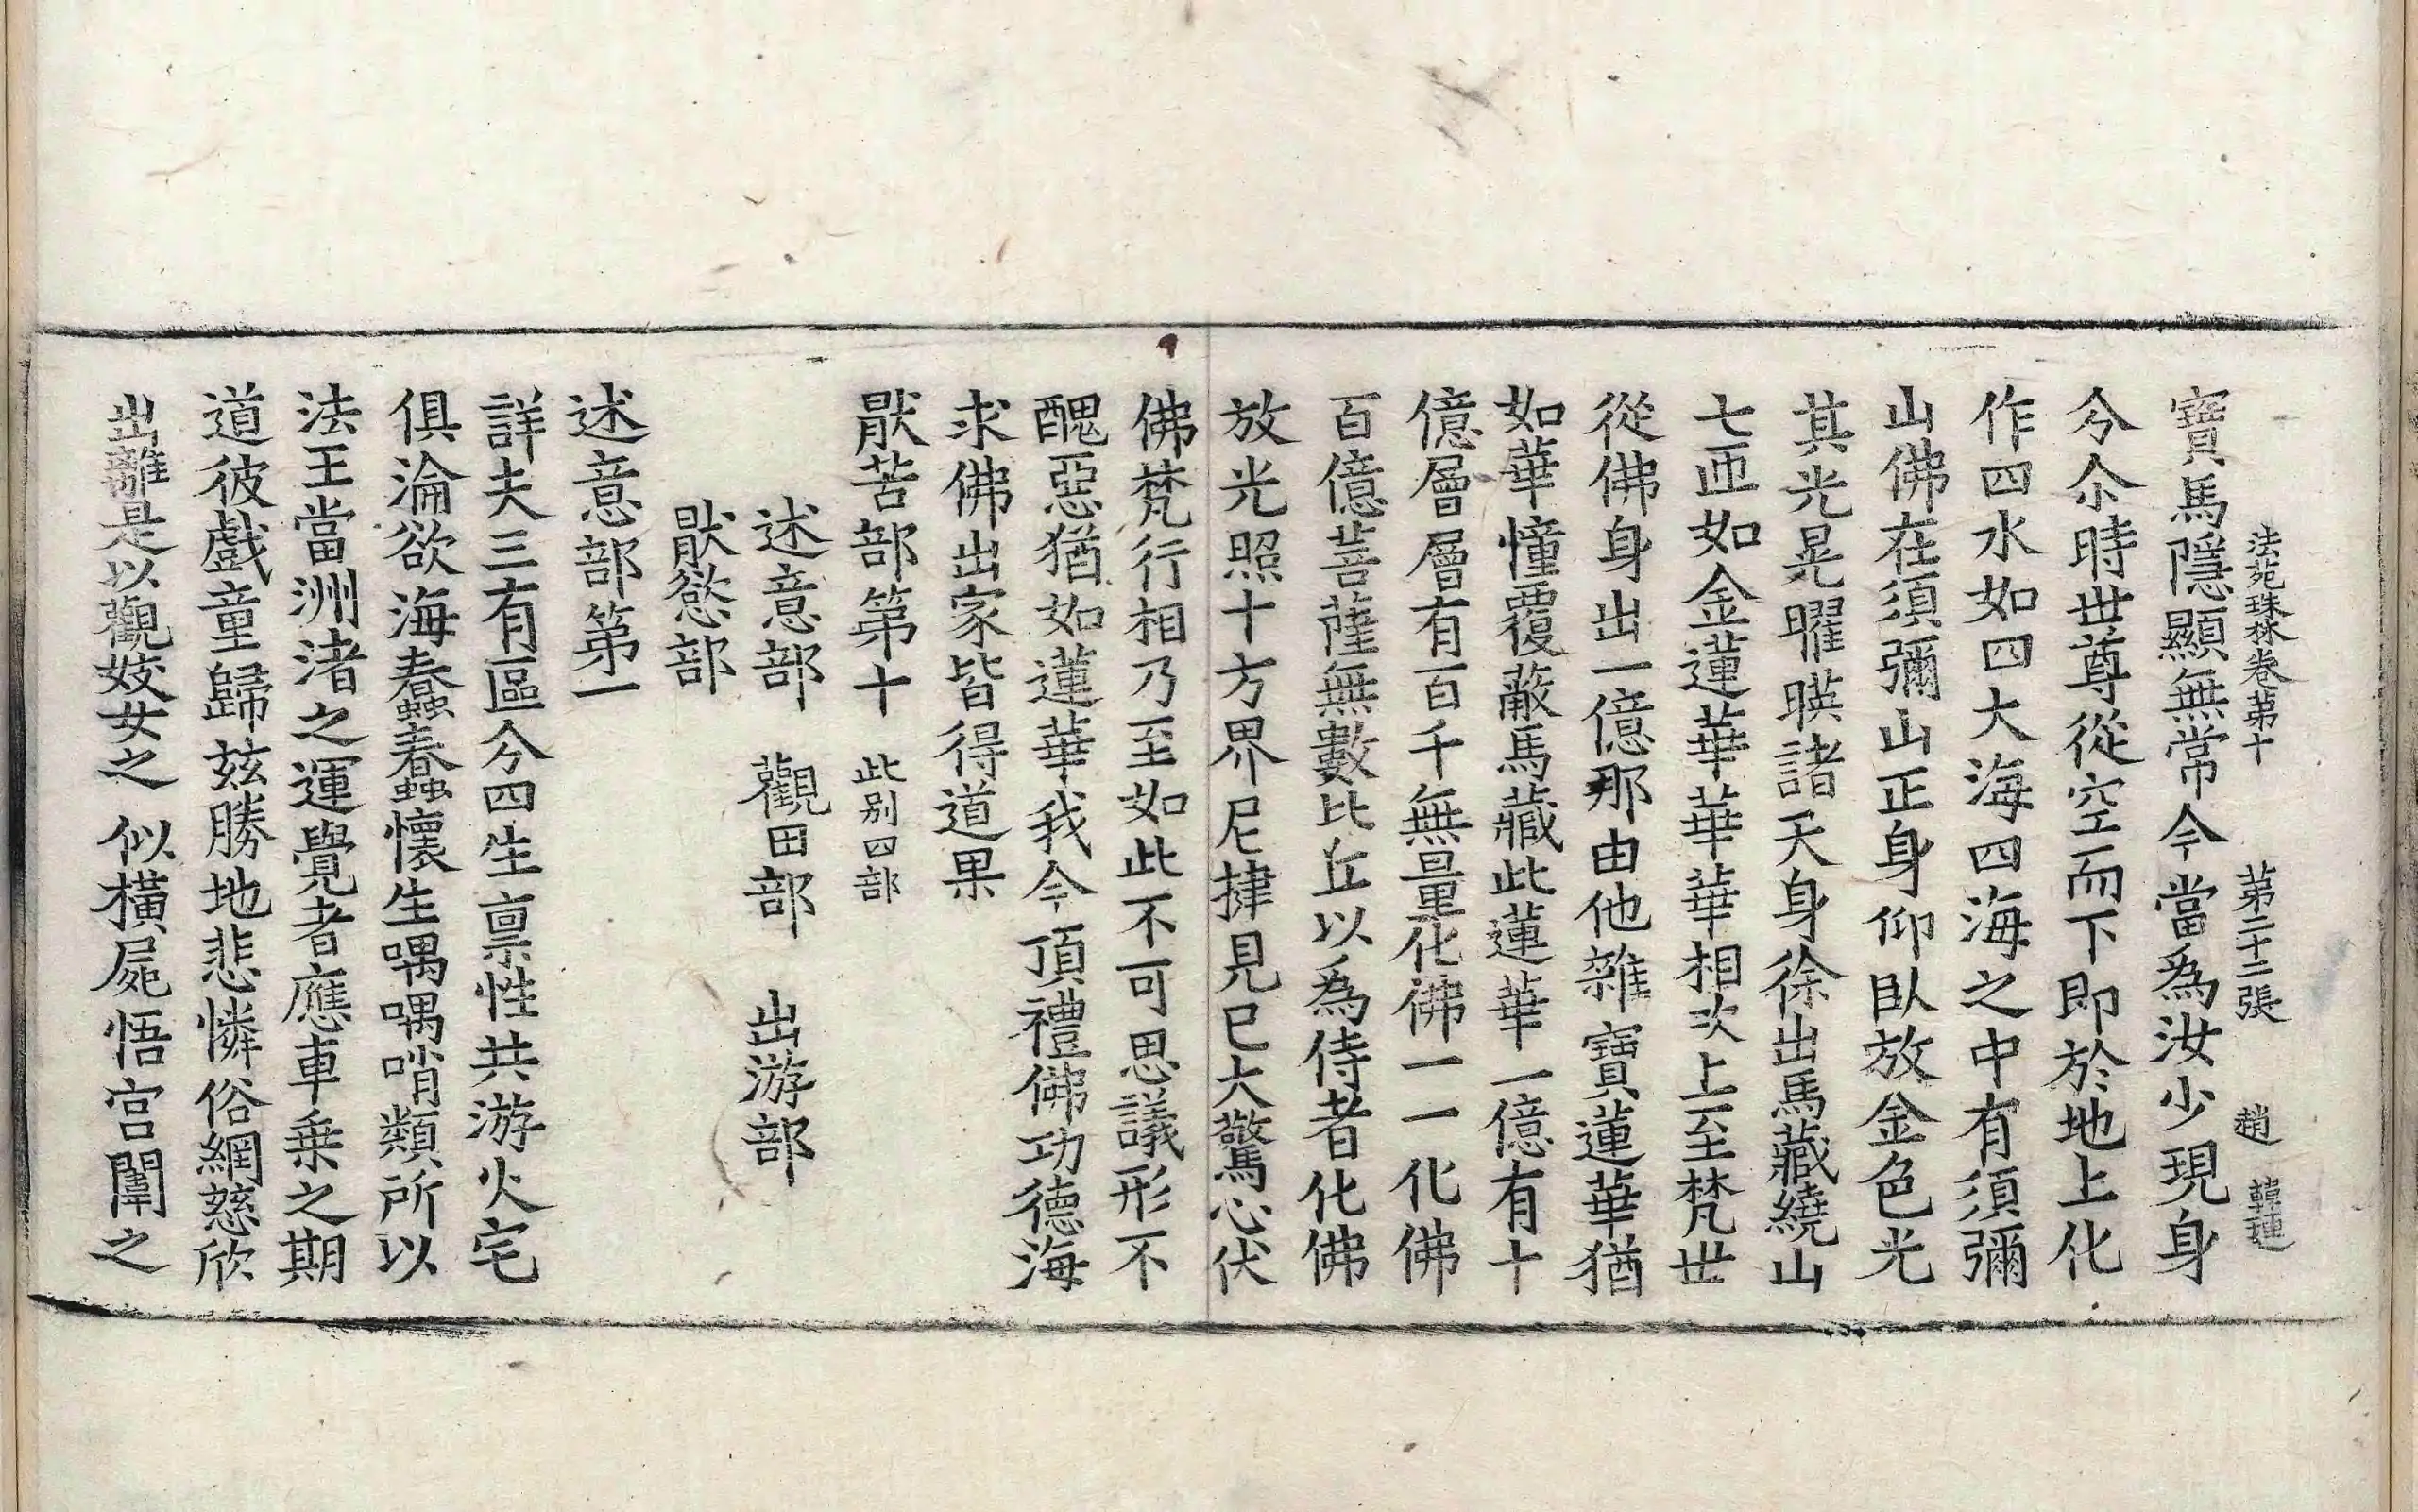 法苑珠林卷苐十　苐二十二張　趙　韓蓮
寶馬隱顯無常今當為汝少現身
分尒時世尊從空而下即於地上化
作四水如四大海四海之中有須彌
山佛在須彌山正身仰臥放金色光
其光晃曜暎諸天身徐出馬藏繞山
七匝如金蓮華華華相次上至梵世
從佛身出一億那由他雜寶蓮華猶
如華幢覆蔽馬藏此蓮華一億有十
億層層有百千無量化佛一一化佛
百億菩薩無數比丘以為侍者化佛
放光照十方界尼揵見已大驚心伏
佛梵行相乃至如此不可思議形不
醜惡猶如蓮華我今頂禮佛功德海
求佛出家皆得道果
猒苦部第十 此别四部
述意部　觀田部　出游部
猒慾部
述意部第一
詳夫三有區分四生禀性共游火宅
俱淪欲海蠢蠢懷生喁喁哨類所以
法王當洲渚之運覺者應車乗之期
道彼戲童歸兹勝地悲憐俗網慈欣
出離是以觀姣女之似橫屍悟宫闈之